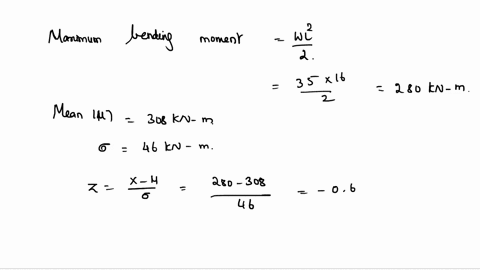 Maximum bending moment = WL²/2.
= 35 × 16/2 = 280 KN-m.
Mean (μ) = 308 KN-m
σ = 46 KN-m.
z = x-μ/σ = 280-308/46 = -0.6